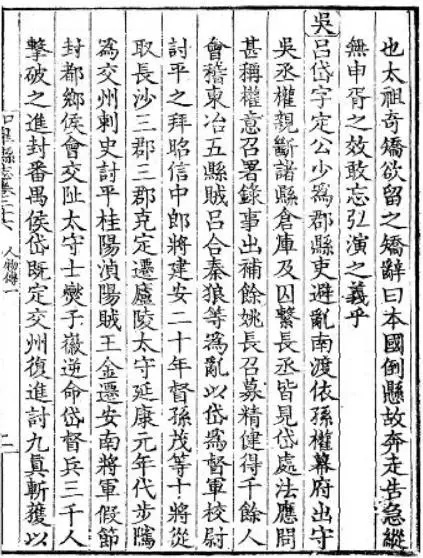 也太祖奇矯欲留之矯辭曰本國倒懸故奔走告急縱
無申胥之效敢忘弘演之義乎
吳
呂岱字定公少為郡縣吏避亂南渡依孫權幕府出守
吳丞權親斷諸縣倉庫及囚繫長丞皆見岱處法應問
甚稱權意召署錄事出補餘姚長召募精健得千餘人
會稽東冶五縣賊呂合秦狼等為亂以岱為督軍校尉
討平之拜昭信中郎將建安二十年督孫茂等十將從
取長沙三郡三郡克定遷廬陵太守延康元年代步隲
為交州刺史討平桂陽湞陽賊王金遷安南將軍假節
封都鄉侯會交阯太守士燮子徽逆命岱督兵三千人
擊破之進封番禺侯岱既定交州復進討九真斬獲以
縣志 人物傳一 二